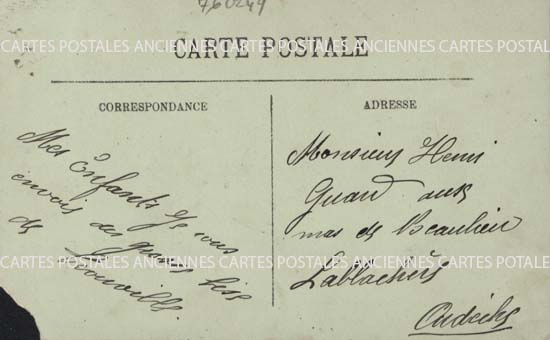 760249
CARTE POSTALE
CARTES POSTALES ANCIENNES CARTES POSTALES ANCIENNES CARTES POSTALES
CORRESPONDANCE
Mes Enfants Je vous
envois des
de
ADRESSE
Monsieur Henri
aux
mas de Beaulieu
Lablachère
Ardèche
CARTES POSTALES ANCIENNES CARTES POSTALES ANCIENNES CARTES POTALES